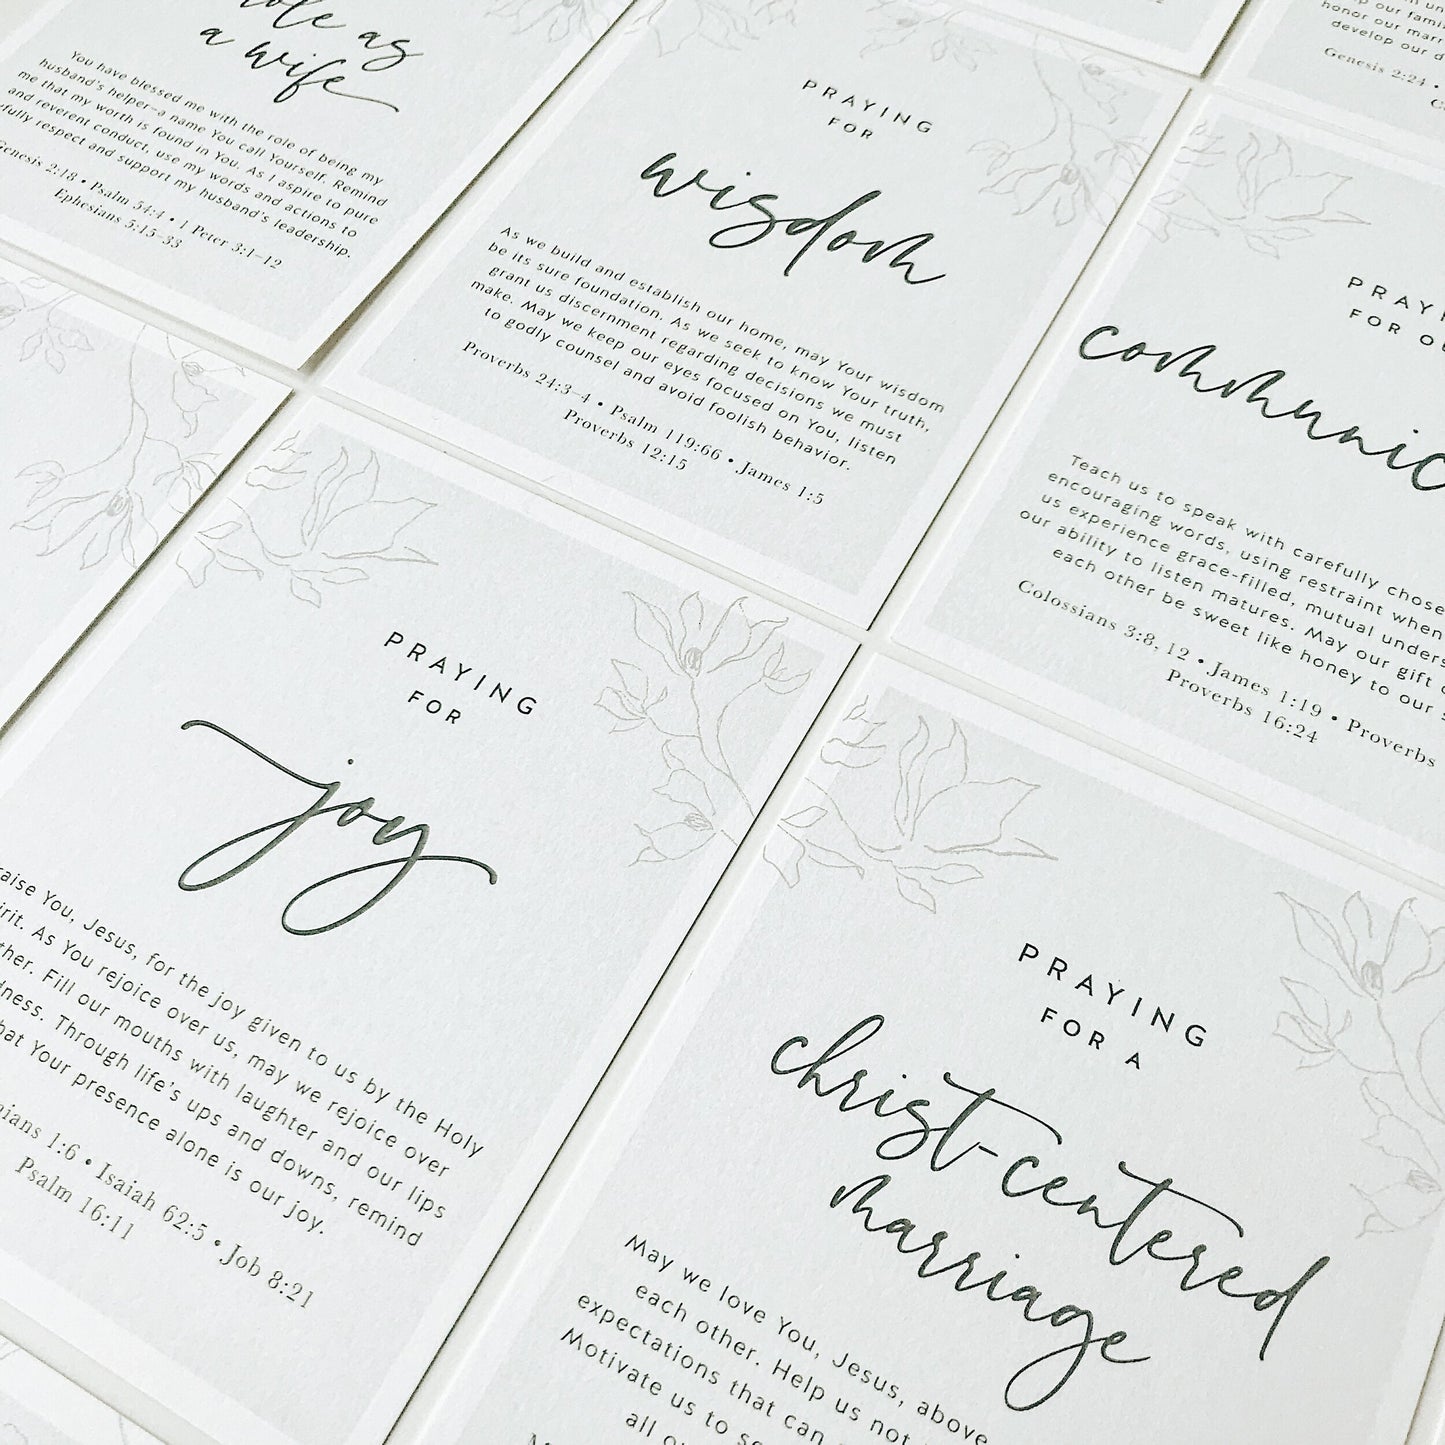 role as
a wife
You have blessed me with the role of being my
husband's helper–a name You call Yourself. Remind
me that my worth is found in You. As I aspire to pure
and reverent conduct, use my words and actions to
respect and support my husband's leadership.
Genesis 2:18 • Psalm 54:4 • 1 Peter 3:1–12
Ephesians 5:15-33
PRAYING
FOR
wisdom
As we build and establish our home, may Your wisdom
be its sure foundation. As we seek to know Your truth,
grant us discernment regarding decisions we must
make. May we keep our eyes focused on You, listen
to godly counsel and avoid foolish behavior.
Proverbs 24:3–4 • Psalm 119:66 • James 1:5
Proverbs 12:15
our fami
honor our marr
develop our d
Genesis 2:24 •
PRAYI
FOR OU
communic
Teach us to speak with carefully chose
encouraging words, using restraint when
us experience grace-filled, mutual unders
our ability to listen matures. May our gift o
each other be sweet like honey to our s
Colossians 3:8, 12 • James 1:19 • Proverbs
Proverbs 16:24
PRAYING
FOR
joy
raise You, Jesus, for the joy given to us by the Holy
irit. As You rejoice over us, may we rejoice over
ther. Fill our mouths with laughter and our lips
dness. Through life's ups and downs, remind
hat Your presence alone is our joy.
nians 1:6 • Isaiah 62:5 • Job 8:21
Psalm 16:11
PRAYING
FOR A
christ-centered
marriage
May we love You, Jesus, above
each other. Help us not
expectations that can
Motivate us to se
all ou